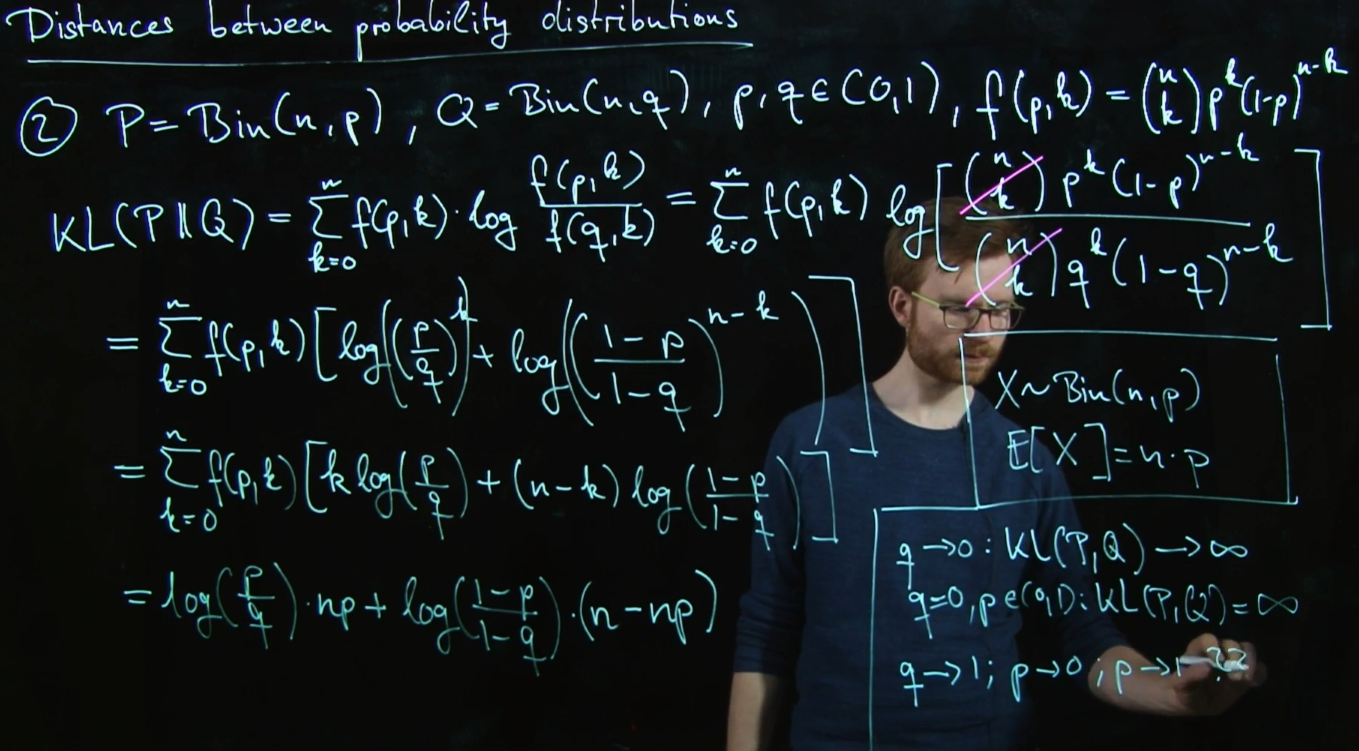 Distances between probability distributions
② P = Bin(n,p), Q = Bin(n,q), p,q ∈ (0,1), f(p,k) = (n k) p^k (1-p)^{n-k}
KL(P‖Q) = Σ_{k=0}^{n} f(p,k) · log f(p,k)/f(q,k) = Σ_{k=0}^{n} f(p,k) log[ (n k) p^k (1-p)^{n-k} / (n k) q^k (1-q)^{n-k} ]
= Σ_{k=0}^{n} f(p,k) [ log((p/q)^k) + log((1-p / 1-q)^{n-k}) ]
X ~ Bin(n,p)
E[X] = n·p
= Σ_{k=0}^{n} f(p,k) [ k log(p/q) + (n-k) log(1-p / 1-q) ]
= log(p/q) · np + log(1-p / 1-q) · (n-np)
q → 0 : KL(P,Q) → ∞
q=0, p ∈ (0,1) : KL(P,Q) = ∞
q → 1; p → 0; p → 1 ??